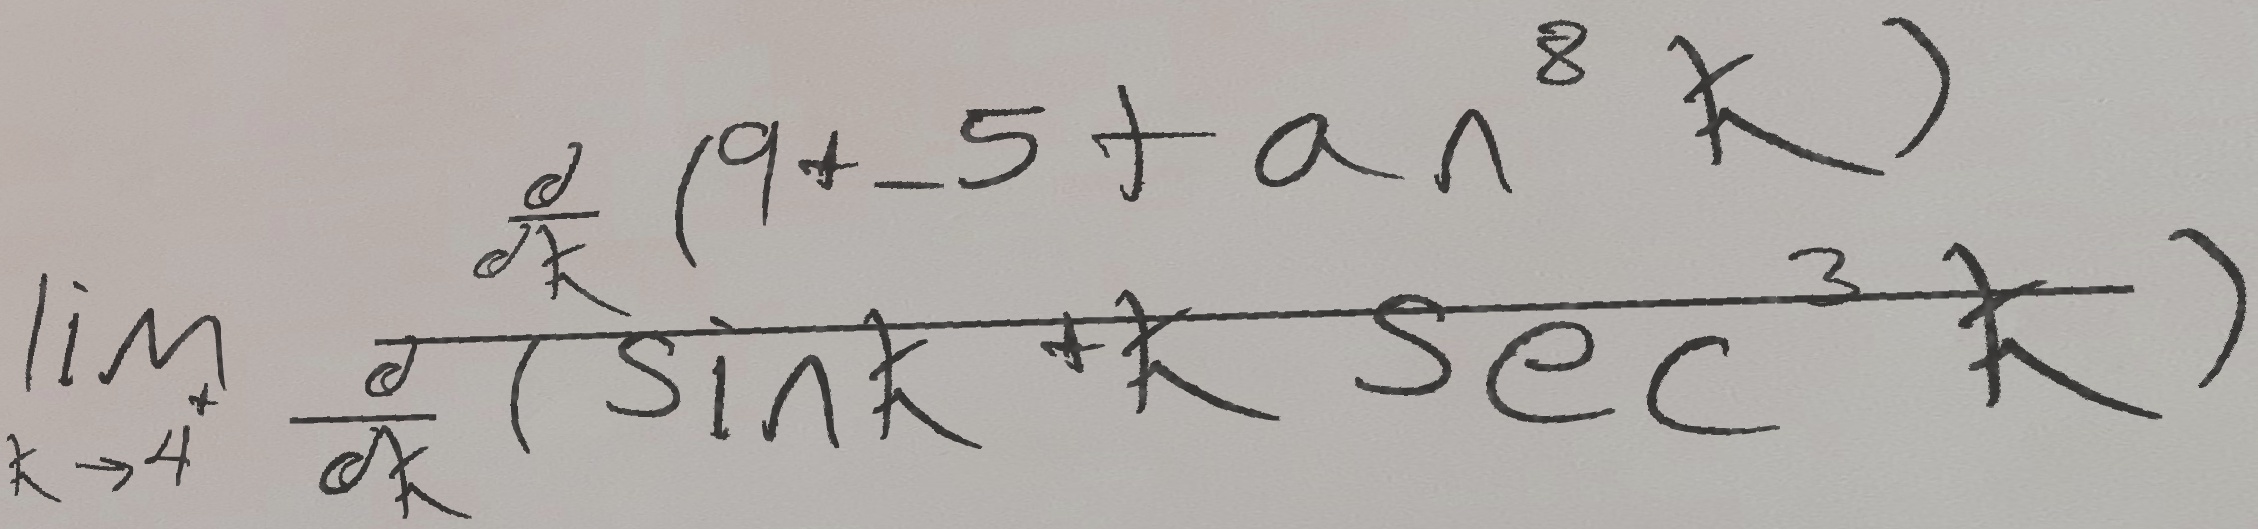 \lim_{k \to 4^{+}} \frac{\frac{d}{dk}(9+-5\tan^{8}k)}{\frac{d}{dk}(\sin k+k\sec^{3}k)}